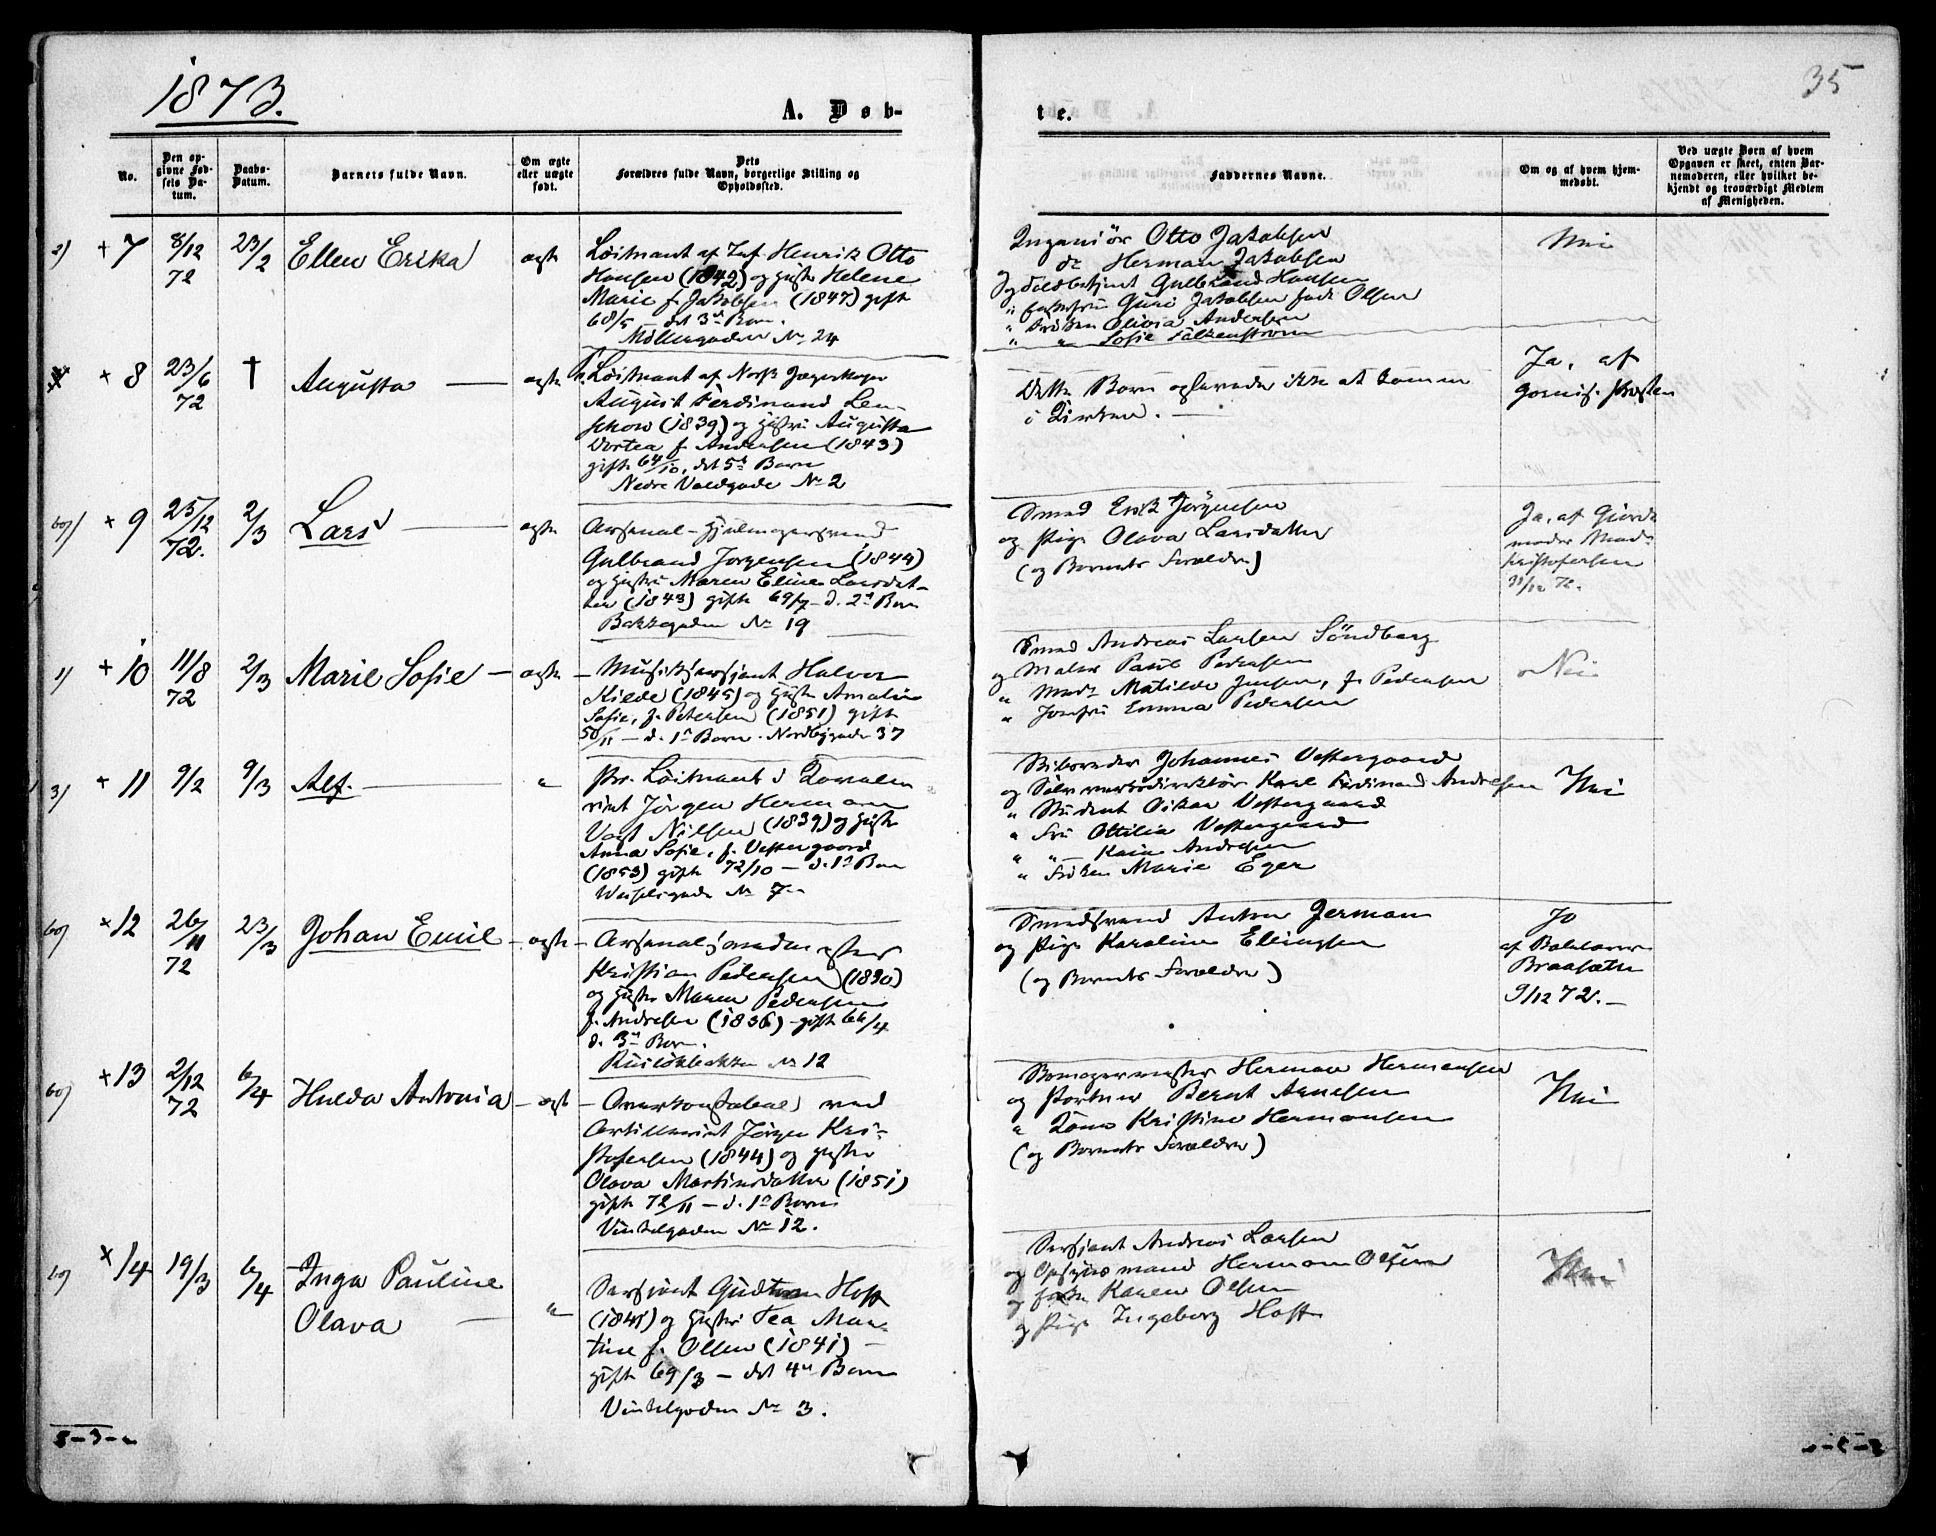 1873.
35
A. Døb-
te.
No.
Den op-
givne Fød-
sels Da-
tum.
Daabs-
Datum.
Barnets fulde Navn.
Om ægte
eller uægte
født.
Dets
Forældres fulde Navn, borgerlige Stilling og
Opholdssted.
Faddernes Navne.
Om og af hvem hjem-
medøbt.
Ved uægte Børn af hvem
Opgaven er skeet, enten Bar-
nemoderen, eller hvilket be-
kjendt og troværdigt Medlem
af Menigheden.
2) + 7 8/12 72 23/2 Ellen Erika ægte
Löitnant af Inf. Henrik Otto
Hansen (1842) og Hustr. Helene
Marie f. Jakobsen (1847) gift
68/5 – det 3d Barn.
Møllergaden No 24
Ingeniör Otto Jakobsen
dr Herman Jakobsen
og Toldbetjent Gulbrand Hansen
" Guri Jakobsen født Olsen
" Fröken Olivia Andersen
" " Sofie Falkenstrøm
Nei
+ 8 23/6 72 † Augusta — ægte
Löitnant af Norsk Jægerkorps
August Ferdinand Len-
schow (1839) og Hustru Augusta
Dortea f. Andersen (1843)
gift 64/10, det 5t Barn
Nedre Voldgade No 2
Dette Barn oplevede ikke at komme
i Kirken. —
Ja, af
Garnis. Præsten
+ 9 25/12 72. 2/3 Lars — ægte
Arsenal-Hjulmagersvend
Gulbrand Jorgensen (1844)
og Hustru Maren Eline Larsdat-
ter (1843) gift 69/7 – d. 2t Barn
Bakkegaden No 19
Smed Erik Jörgensen
og Pige Olava Larsdatter
(og Barnets Forældre)
Ja, af Gjorde
moder Mad.
Kristofersen
31/12 72.
1) + 10 11/8 72 2/3 Marie Sofie — ægte
– Musiksersjant Halvor
Kilde (1845) og Hustr. Amalie
Sofie, f. Petersen (1851) gift
50/11 – d. 1t Barn. Nordbygaden 37
Smed Andreas Larsen Söndberg
og Maler Paul Pedersen
" Mad. Matilde Jensen, f. Pedersen
" Jomfru Emma Pedersen
Nei
3) + 11 9/2 9/3 Alf. — "
Pr. Löitnant i Kavale-
riet Jörgen Herman
Vogt Nilsen (1839) og Hustr.
Anna Sofie, f. Vestergaard
(1853) gift 72/10 – d. 1t Barn
No 7
Johannes Vestergaard
og Sölvverksdirektör Karl Ferdinand Andresen
" Student Oskar Vestergaard
" Fru Ottilia Vestergaard
" " Kaia Andresen
" Fröken Marie Eger
Nei
+ 12 26/11 72 23/3 Johan Emil – ægte
– Arsenal
Kristian Pedersen (1830)
og Hustr. Maren Pedersen
f. Andresen (1836) – gift 66/4
d. 3t Barn.
Ruselökbakken No 12
Smedsvend Anton Jerman
og Pige Karoline Ellingsen
(og Barnets Forældre)
Jo
af
Braasæth
9/12 72. –
+ 13 2/12 72 6/4 Hulda Antonia – ægt
– Overkonstabel ved
Artilleriet Jörgen Kri-
stofersen (1844) og Hustru
Olava Martinsdatter (1851)
gift 72/11 – d. 1t Barn
Vinkelgaden No 12.
Herman Hermansen
og Portner Bernt Arnesen
" Kone Kristine Hermansen
(og Barnets Forældre)
Nei
+ 14 19/3 6/4 Inga Pauline
Olava — "
Sersjant Hoff
(1841) og Hustru Tea Mar-
tine f. Olsen (1841) –
gift 69/3 – det 4de Barn
Vinkelgaden No 3.
Sersjant Andreas Larsen
og Opsynsmand Herman Olsen
og Karen Olsen
og Pige Ingeborg Hoff
Nei